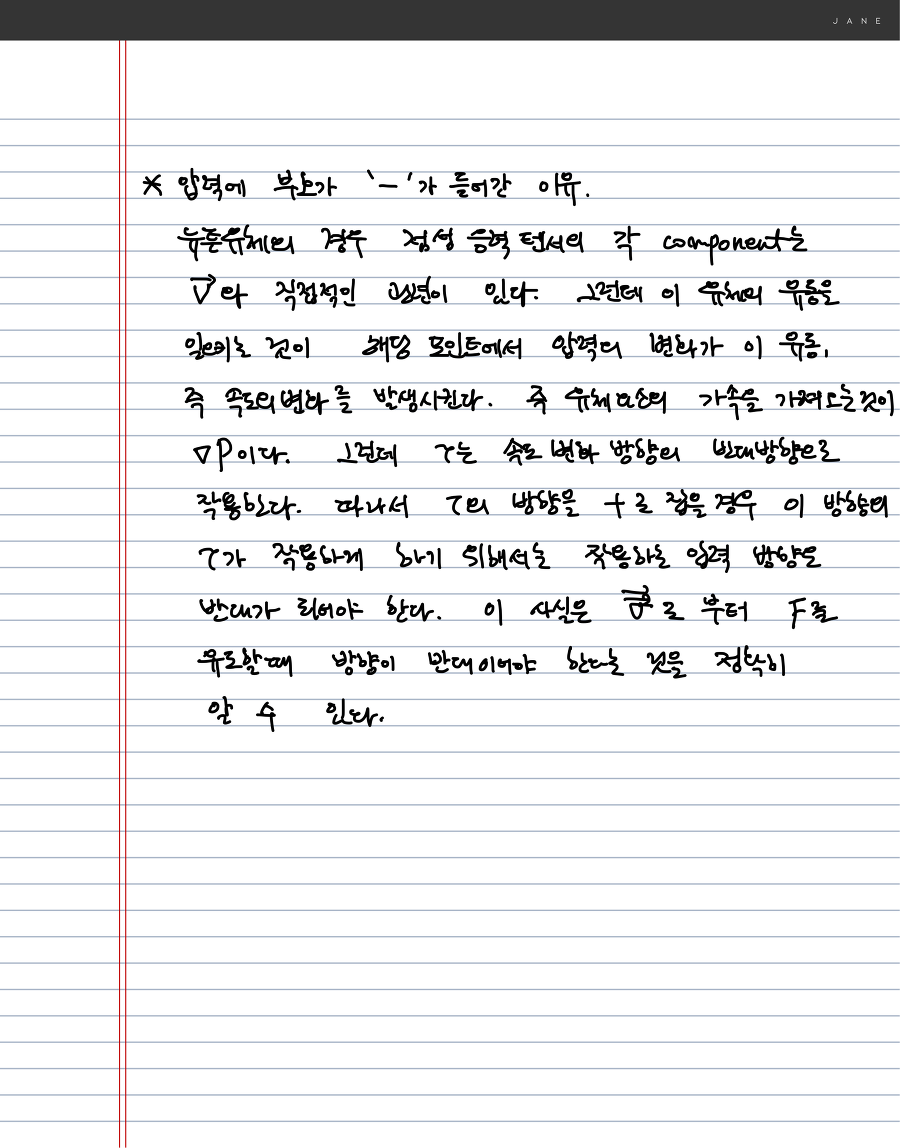 JANE
* 압력에 부호가 '-'가 들어간 이유.
뉴튼유체의 경우 점성 응력 텐서의 각 component는
V와 직접적인 관련이 있다. 그런데 이 유체의 유동을
일으키는 것이 해당 포인트에서 압력의 변화가 이 유동,
즉 속도의 변화를 발생시킨다. 즉 유체 요소의 가속을 가져오는것이
▽P이다. 그런데 τ는 속도 변화 방향의 반대방향으로
작용한다. 따나서 τ의 방향을 +로 잡을 경우 이 방향의
τ가 작용하게 하기 위해서는 작용하는 압력 방향은
반대가 되어야 한다. 이 사실은 로 부터 F를
유도할때 방향이 반대이어야 한다는 것을 정확히
알 수 있다.